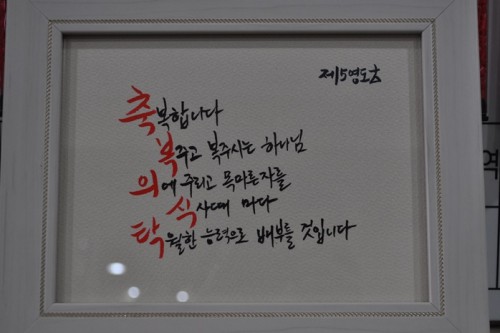 제5영도
축복합니다
복주고 복주시는 하나님
의에 주리고 목마른자를
식사때 마다
탁월한 능력으로 배부를 것입니다
역